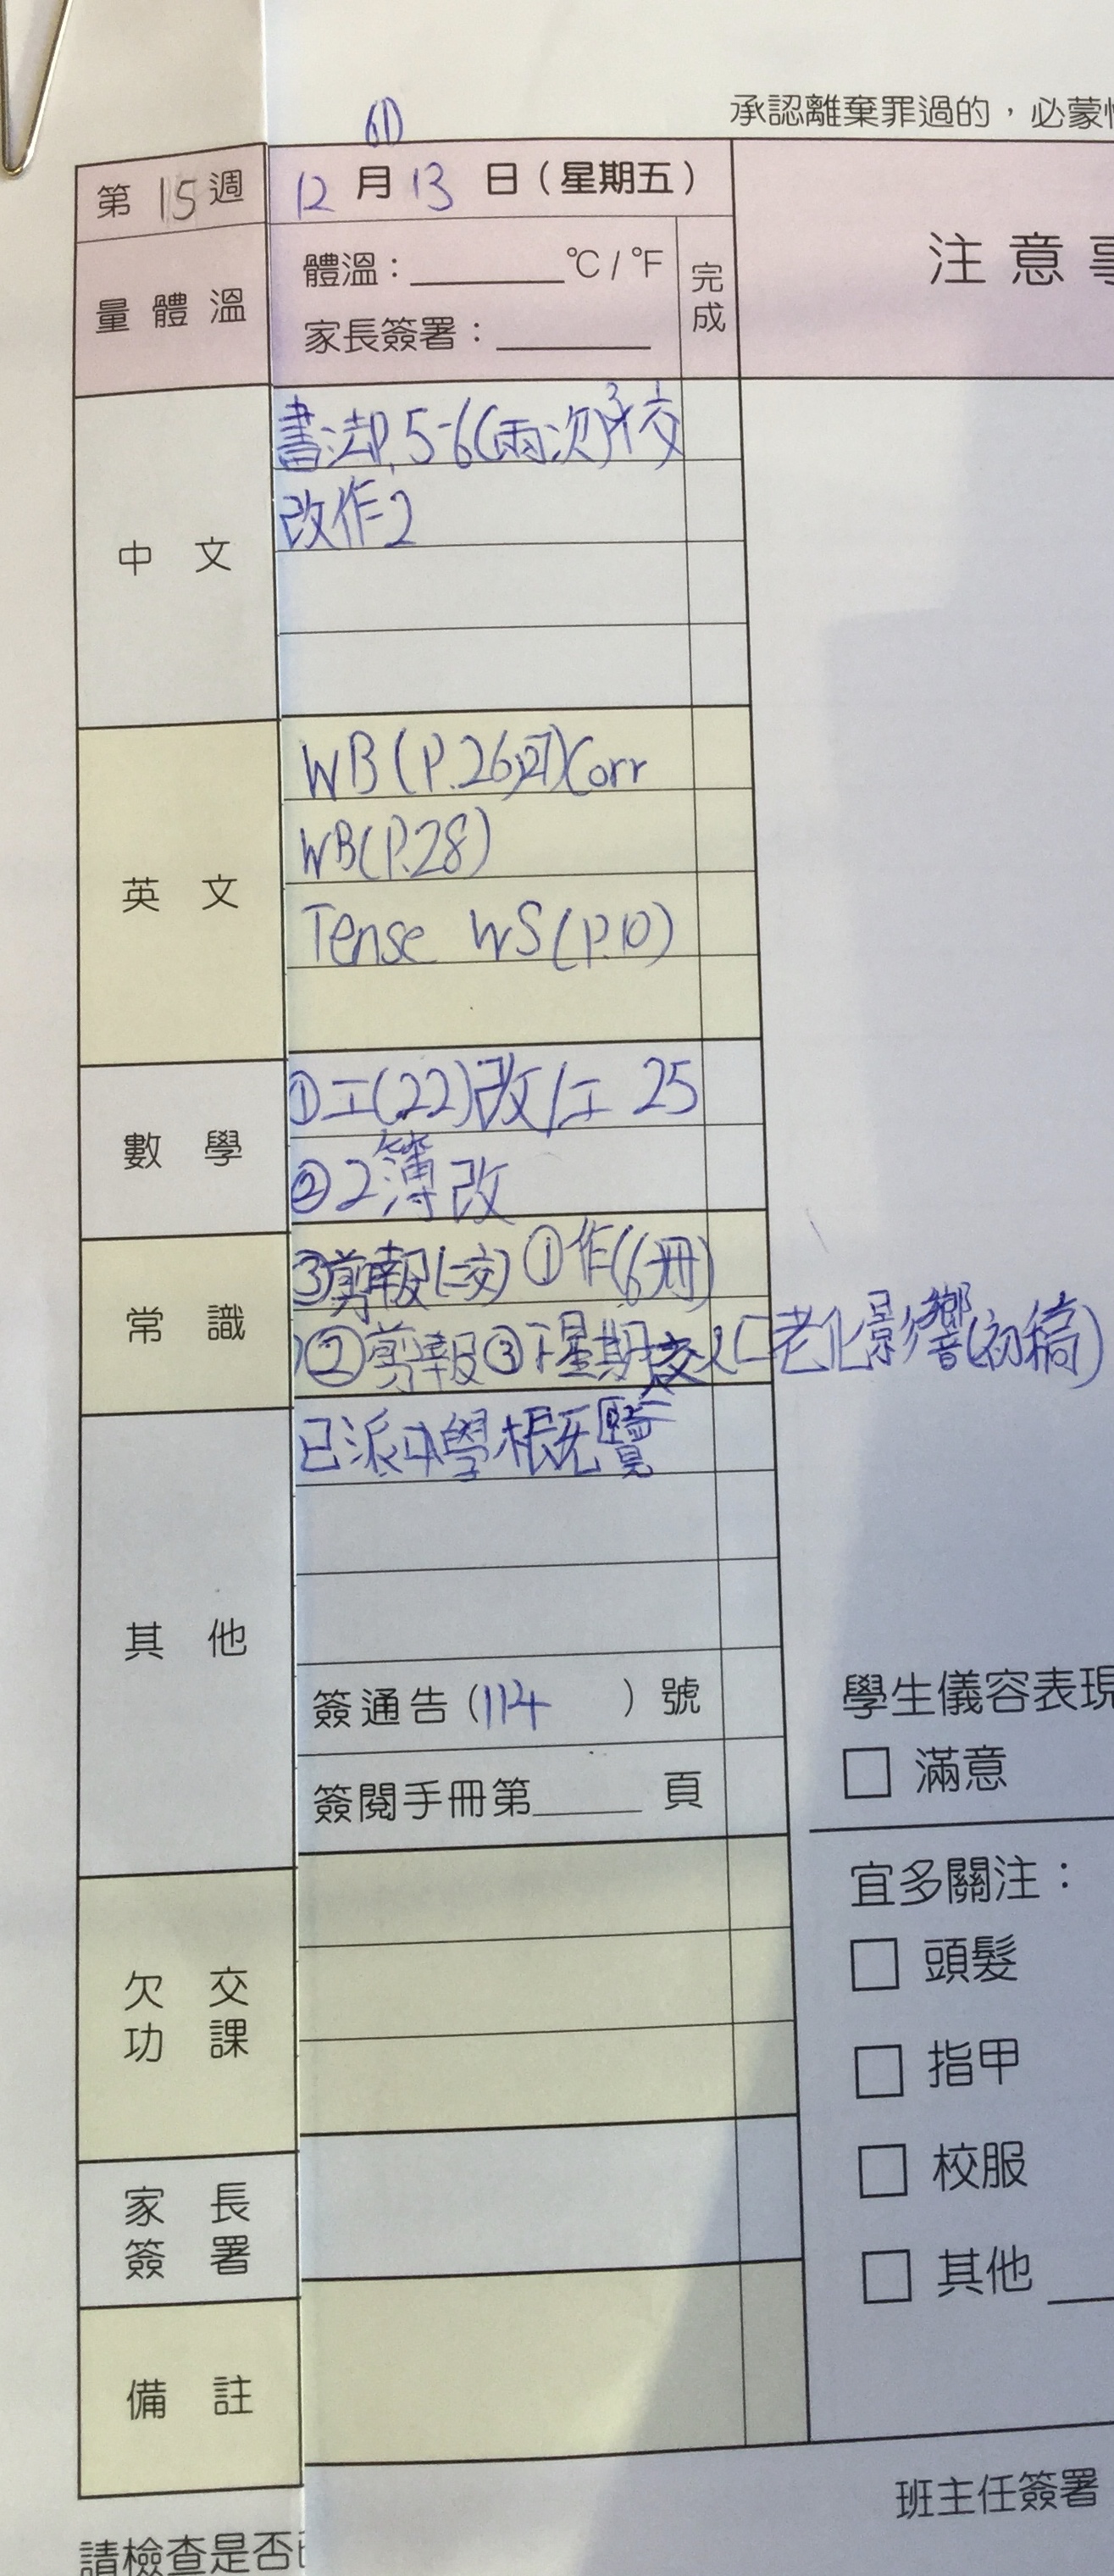 承認離棄罪過的，必蒙
6D
第15週
12月13日（星期五）
量體溫
體溫：________℃/℉
家長簽署：________
完成
注意事
中文
書法P.5-6(兩次)交
改作2
英文
WB(P.26,27)Corr
WB(P.28)
Tense WS(P.10)
數學
①工(22)改/工25
②2簿改
常識
③剪報(二交) ①作(6冊)
②剪報③下星期交人口老化影響(初稿)
其他
已派中學概覽
簽通告(114)號
簽閱手冊第____頁
學生儀容表現
□ 滿意
宜多關注：
□ 頭髮
□ 指甲
□ 校服
□ 其他
欠交功課
家長簽署
備註
班主任簽署
請檢查是否已